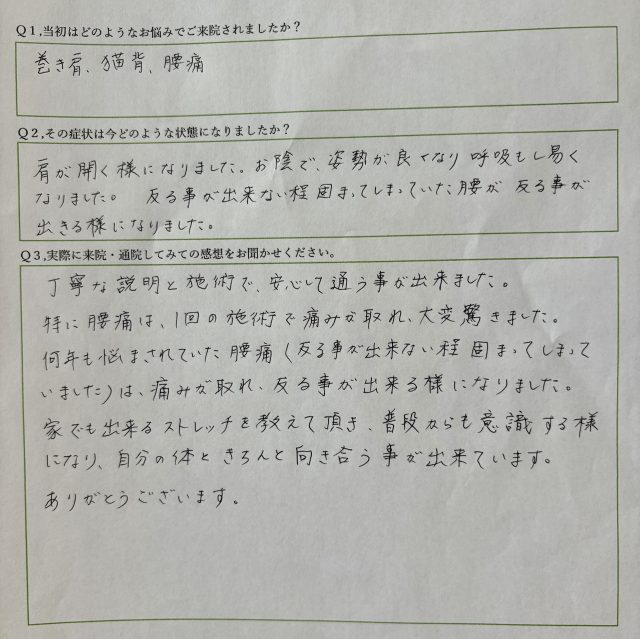 Q1,当初はどのようなお悩みでご来院されましたか？
巻き肩、猫背、腰痛
Q2,その症状は今どのような状態になりましたか？
肩が開く様になりました。お陰で、姿勢が良くなり呼吸もし易く
なりました。 反る事が出来ない程固まってしまっていた腰が反る事が
出きる様になりました。
Q3,実際に来院・通院してみての感想をお聞かせください。
丁寧な説明と施術で、安心して通う事が出来ました。
特に腰痛は、1回の施術で痛みが取れ、大変驚きました。
何年も悩まされていた腰痛(反る事が出来ない程固まってしまって
いました)は、痛みが取れ、反る事が出来る様になりました。
家でも出来るストレッチを教えて頂き、普段からも意識する様
になり、自分の体ときちんと向き合う事が出来ています。
ありがとうございます。